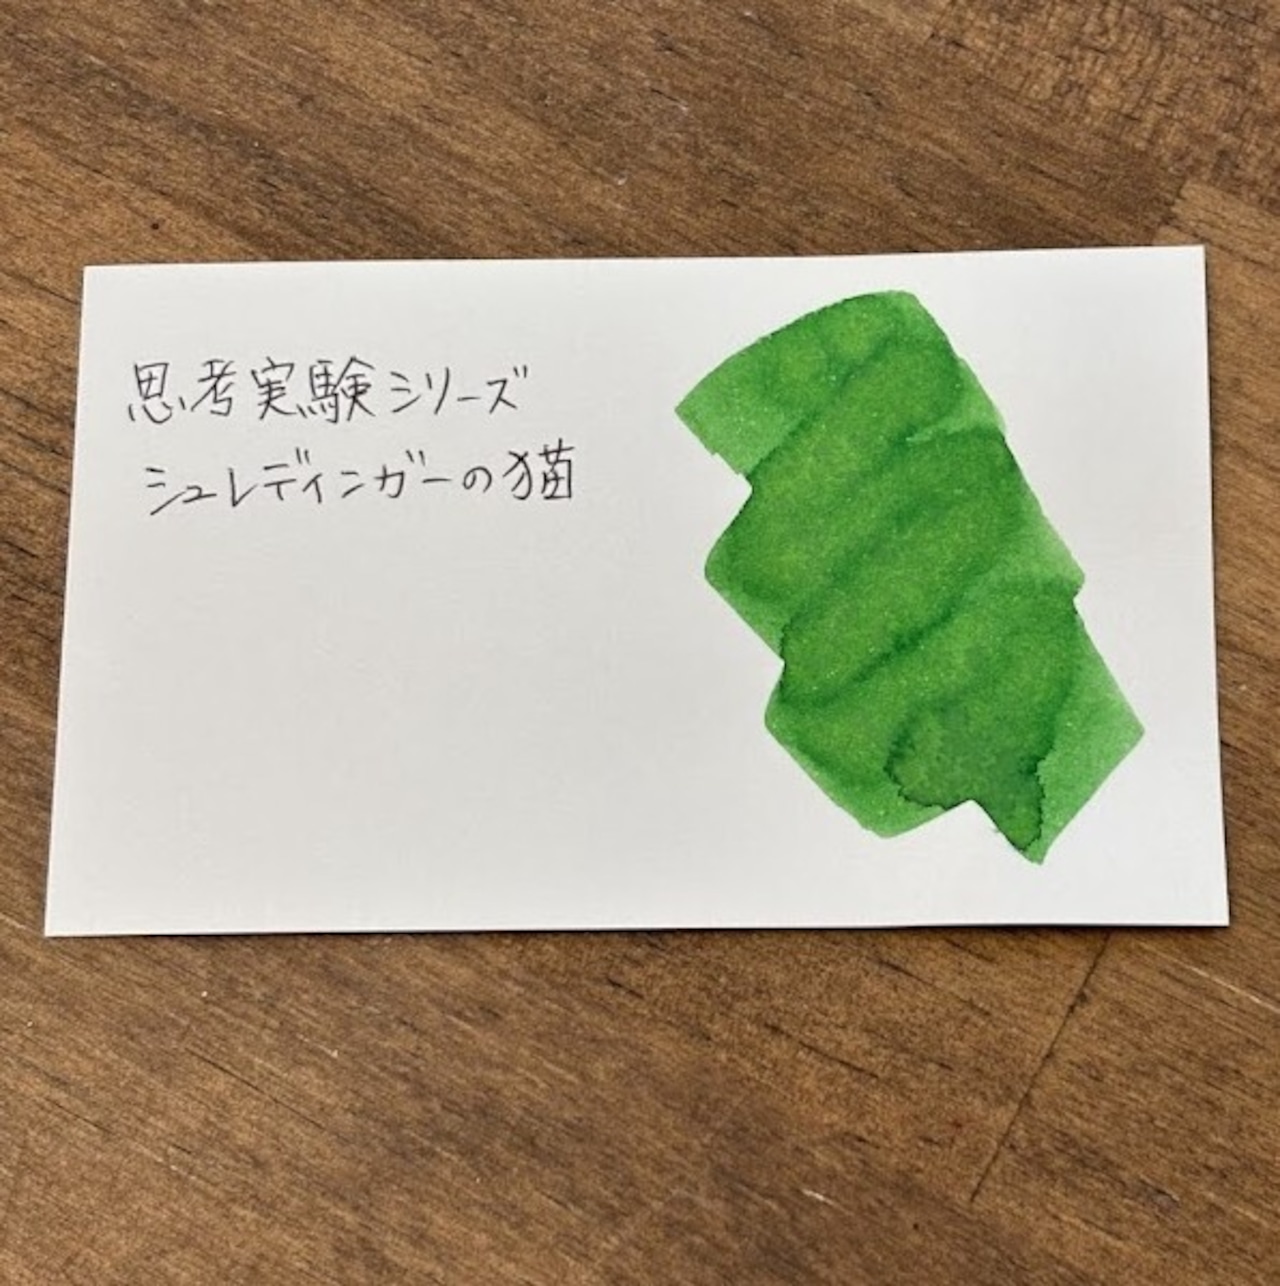 思考実験シリーズ
シュレディンガーの猫